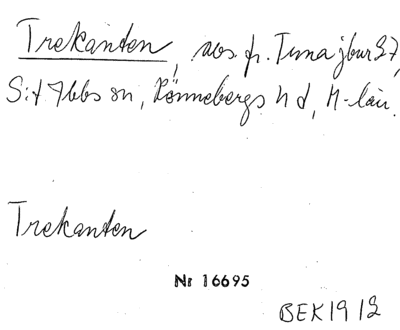 Trekanten, avs. fr. Tuna jbur 27,
S:t Ibbs sn, Rönnebergs hd, M-län.
Trekanten
Nr 16695
BEK 1912